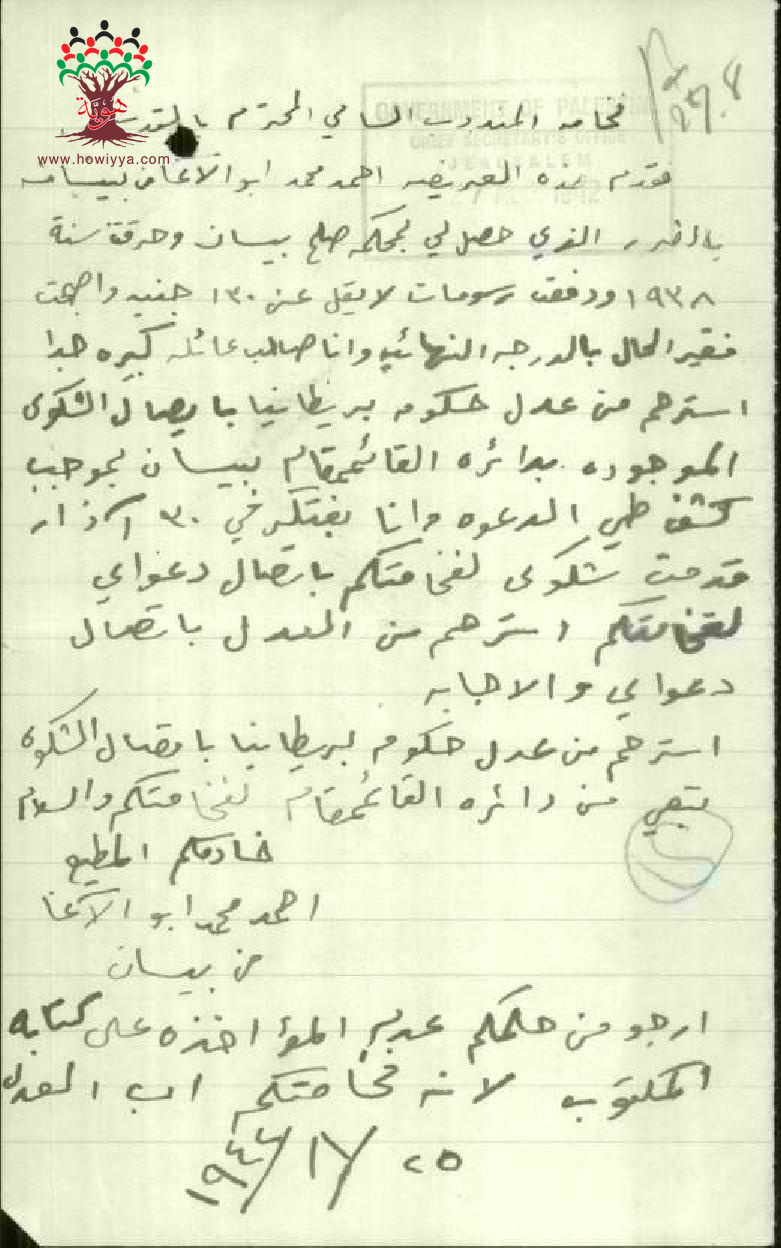 هويّة
www.howiyya.com
GOVERNMENT OF PALESTINE
CHIEF SECRETARY'S OFFICE
JERUSALEM
1942
27.8
فخامة المندوب السامي المحترم بالقدس
فقدم هذه العريضه احمد محمد ابو الآغا من بيسان
بالضرر الذي حصل لي بمحكمة صلح بيسان وحرقة سنة
١٩٣٨ ودفعت رسومات لا يقل عن ١٣٠ جنيه واصبحت
فقير الحال بالدرجه النهائيه وانا صاحب عائله كبيره جدا
استرحم من عدل حكومه بريطانيا بايصال الشكوى
الموجوده بدائره القائمقام ببيسان بموجب
كشف طي الدعوه وانا بفتكر في ٣٠ آذار
قدمت شكوى لفخامتكم باتصال دعواي
لفخامتكم استرحم من العدل باتصال
دعواي والاجابه
استرحم من عدل حكومه بريطانيا بايصال الشكوى
بتبعي من دائره القائمقام لفخامتكم والسلام
خادمكم المطيع
احمد محمد ابو الآغا
من بيسان
ارجو من حلمكم عدم المؤاخذه على كتابه
المكتوب لانه فخامتكم اب العدل
٢٥/ /١٩٤٢